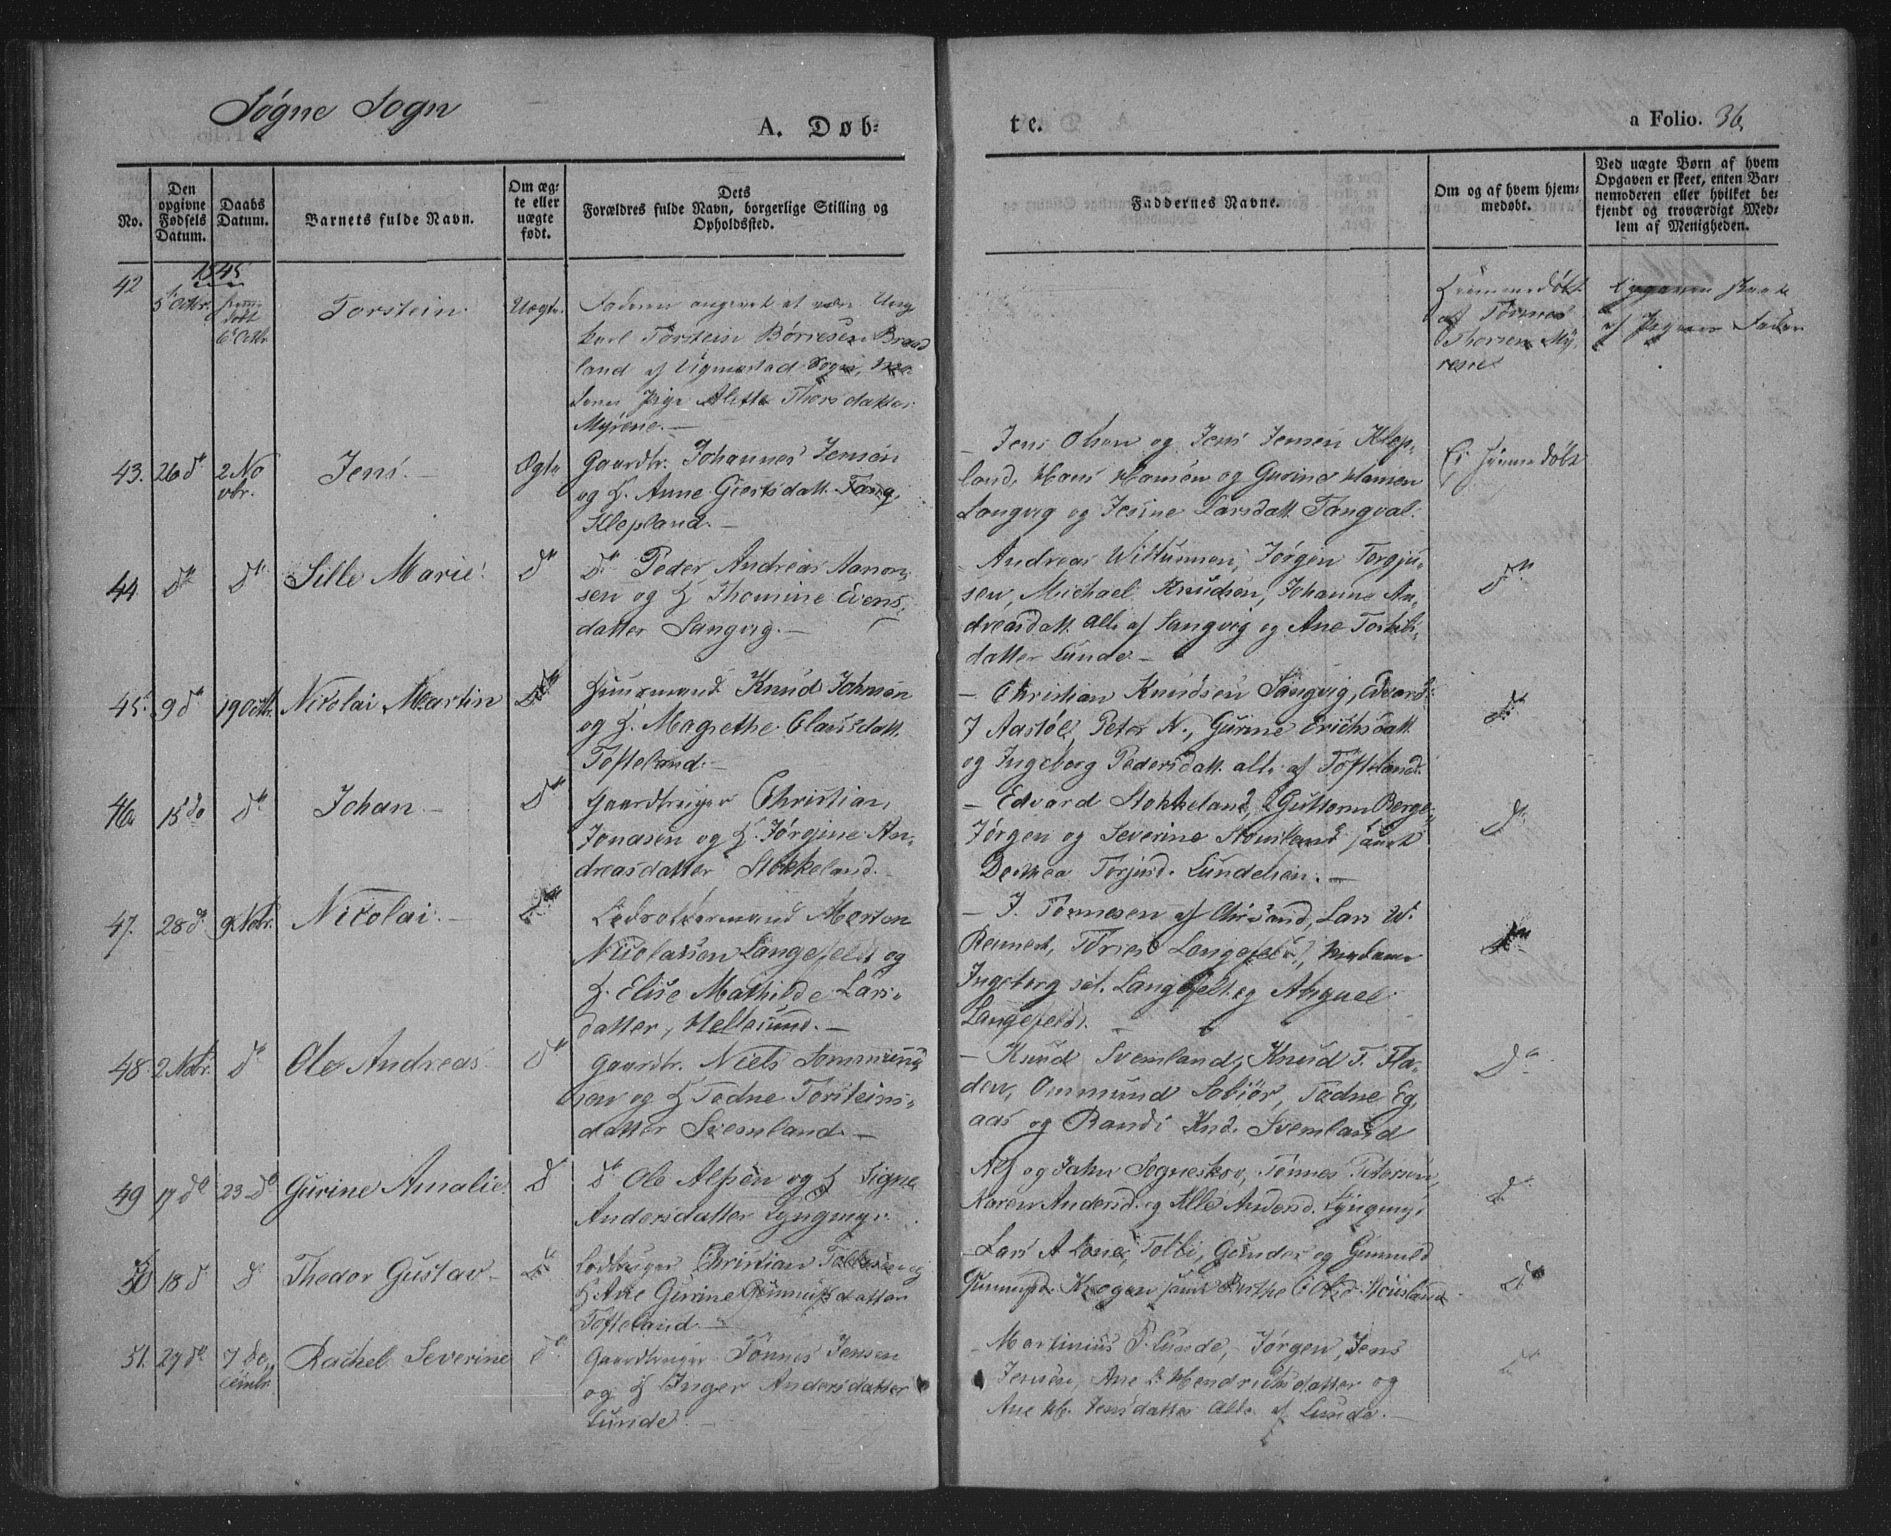 Søgne Sogn
A. Døb-
te.
a Folio. 36.
No.
Den opgivne Fødsels Datum.
Daabs Datum.
Barnets fulde Navn.
Om ægte eller uægte født.
Dets
Forældres fulde Navn, borgerlige Stilling og
Opholdssted.
Faddernes Navne.
Om og af hvem hjem-
medøbt.
Ved uægte Børn af hvem
Opgaven er skeet, enten Bar-
nemoderen eller hvilket be-
kjendt og troværdigt Med-
lem af Menigheden.
1845
42 5 Octbr. 6 Octbr. Torstein Uægte Faderen angivet at være Ung
karl Torstein Børresen Braad
land af Vigmostad Sogn, Mo-
deren Pige Alette Thorsdatter
Myrene.—
Hjemmedøbt
af Tønnes
Thorsen My-
rene
43. 26 d° 2 No
vbr. Jens — Ægte Gaardbr. Johannes Jensen
og H. Anne Giertsdatt. Tang,
Klepland. —
— Jens Olsen og Jens Jensen Klep-
land, Hans Hansen og Gurine Hansen
Langvig og Jesine Larsdatt. Tangval.
Ei hjemmedøbt
44. d° d° Sille Marie d° d° Peder Andreas Aanon-
sen og H Thomine Evens-
datter Langvig. —
Andreas Wittunnen, Jørgen Torgju-
sen, Michael Knudsen, Johanne An-
dreasdatt. alle af Langvig og Ane Torkils-
datter Lunde —
d°
45. 9 d° 19 Octbr. Nicolai Martin d° Huusmand Knud Johnsen
og H. Magrethe Clausdatt.
Tofteland. —
— Christian Knudsen Langvig, Edvard
J Aastøl, Peter N., Gurine Erichsdatt.
og Ingeborg Pedersdatt. alle af Tofteland.
d°
46. 15 do d° Johan — d° Gaardbruger Christian
Jonasen og H. Jørgine An-
dreasdatter Stokkeland. —
— Edvard Stokkeland, Guttorm Berge,
Jørgen og Severine Stousland samt
Dorthea Torjusd. Lundeheien. —
d°
47. 28 d° 9 Novbr. Nicolai. — d° Lodsoldermand Morten
Nicolaisen Langefeldt og
H. Elise Mathilde Lars-
datter, Hellesund. —
— J. Tønnesen af Chrsand, Lars W.
Reinert, Tøries Langefeldt, Madame
Ingeborg sel. Langefelt og Abigael
Langefeldt.
d°
48. 2 Novbr. d° Ole Andreas d° Gaardbr. Niels Sommund-
sen og H Todne Torsteins-
datter Svemland. —
— Knud Svemland, Knud T. Fla-
den, Ommund Søbiør, Todne Eg,
aas og Randi Knd. Svemland
d°
49 17 d° 23 d° Gurine Amalie d° d° Ole Alfsen og H Signe
Andersdatter Lyngmyr.
Alf og Jahn Sogneskov, Tønnes Pedersen,
Karen Andersd. og Alle Andersd. Lyngmyr
d°
50 18 d° d° Thedor Gustav — d° Lodbruger Christian og
H Ane Gurine Gunnulfsdatter
Tofteland. —
— Lars A. Tofte, Gunder og Gunnuld
Gunnulfsd. Krogen samt Berthe Housland
d°
51. 27 d° 7 De-
cembr. Rachel Severine d° Gaardbruger Tønnes Jensen
og H Inger Andersdatter
Lunde. —
— Martinius P. Lunde, Jørgen, Jens
Jensen, Ane Hendrichsdatter og
Ane M. Jensdatter Alle af Lunde. —
d°